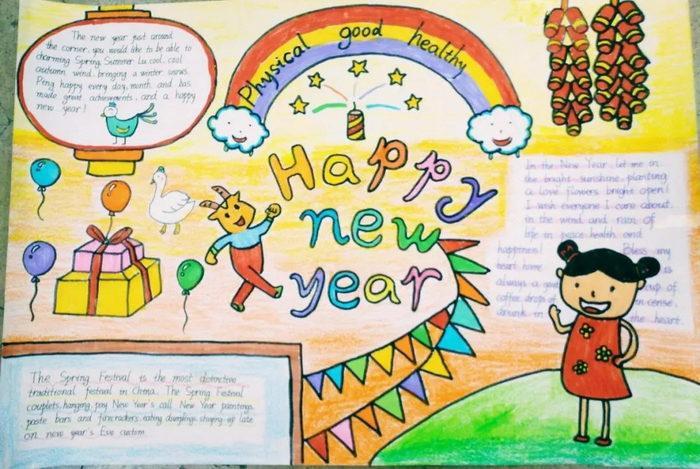 The new year just around
the corner, you would like to be able to
charming Spring, Summer Lu cool, cool
autumn wind, bringing a winter works.
Peng happy every day, month and has
made great achievements, and a happy
new year!
Physical good healthy
Happy
new
year
In the New Year, let me in
the bright sunshine, planting
a love flowers bright open!
I wish everyone I care about
in the wind and rain of
life in peace, health and
happiness! Bless my
heart home is
always a cup of
coffee, drops of incense,
drunk in the heart.
The Spring Festival is the most distinctive
traditional festival in China. The Spring Festival
couplets, hanging, pay New Year's call New Year paintings,
paste bars and firecrackers, eating dumplings, staying up late
on new year's Eve custom